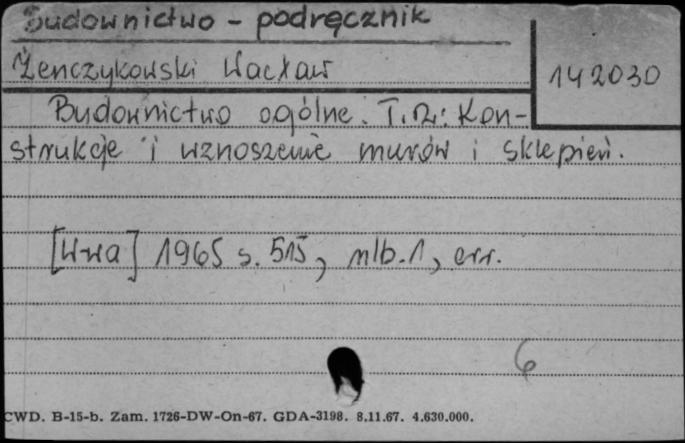 Budownictwo - podręcznik
Żenczykowski Wacław
142030
Budownictwo ogólne. T.2: Kon-
strukcje i wznoszenie murów i sklepień.
[W-wa] 1965 s. 515, nlb. 1, err.
6
CWD. B-15-b. Zam. 1726-DW-On-67. GDA-3198. 8.11.67. 4.630.000.